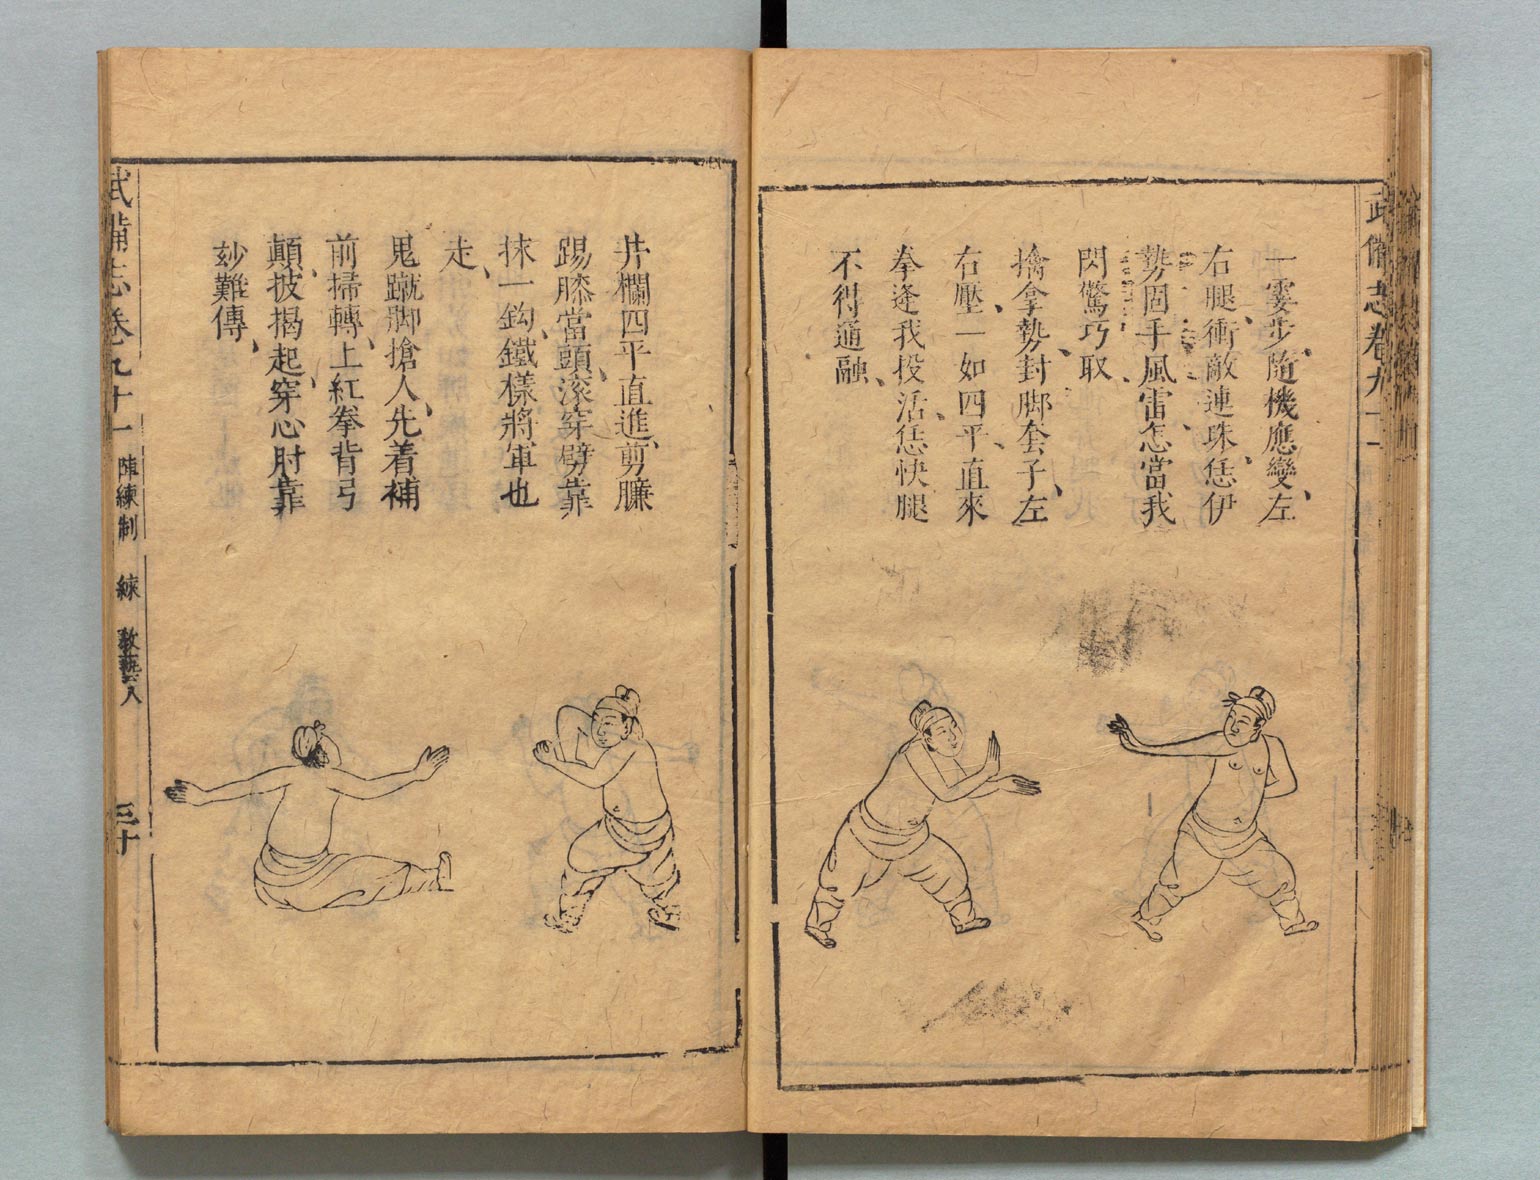 武備志卷九十一
一霎步隨機應變左
右腿衝敵連珠恁伊
勢固手風雷怎當我
閃驚巧取
擒拿勢封脚套子左
右壓一如四平直來
拳逢我投活恁快腿
不得通融
井欄四平直進剪臁
踢膝當頭滾穿劈靠
抹一鈎鐵樣將軍也
走
鬼蹴脚搶人先着補
前掃轉上紅拳背弓
顛披揭起穿心肘靠
妙難傳
武備志卷九十一 陣練制 練 教藝八 三十